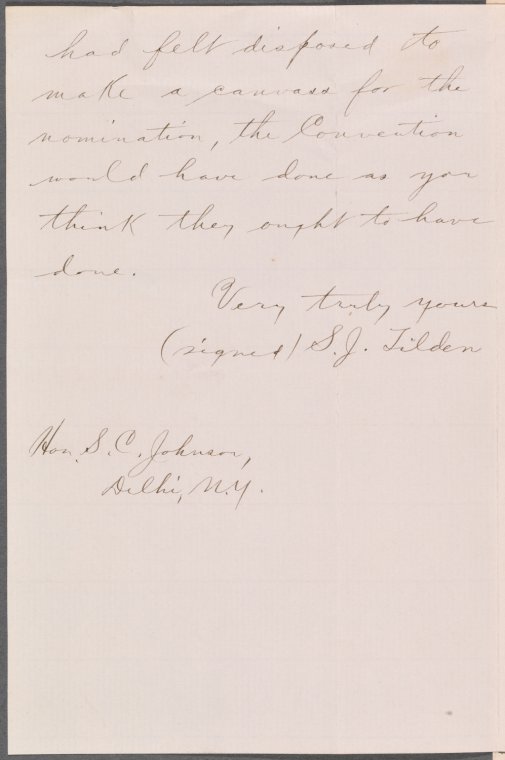 had felt disposed to
make a canvass for the
nomination, the Convention
would have done as you
think they ought to have
done.
Very truly yours
(signed) S. J. Tilden
Hon. S. C. Johnson,
Delhi, N.Y.